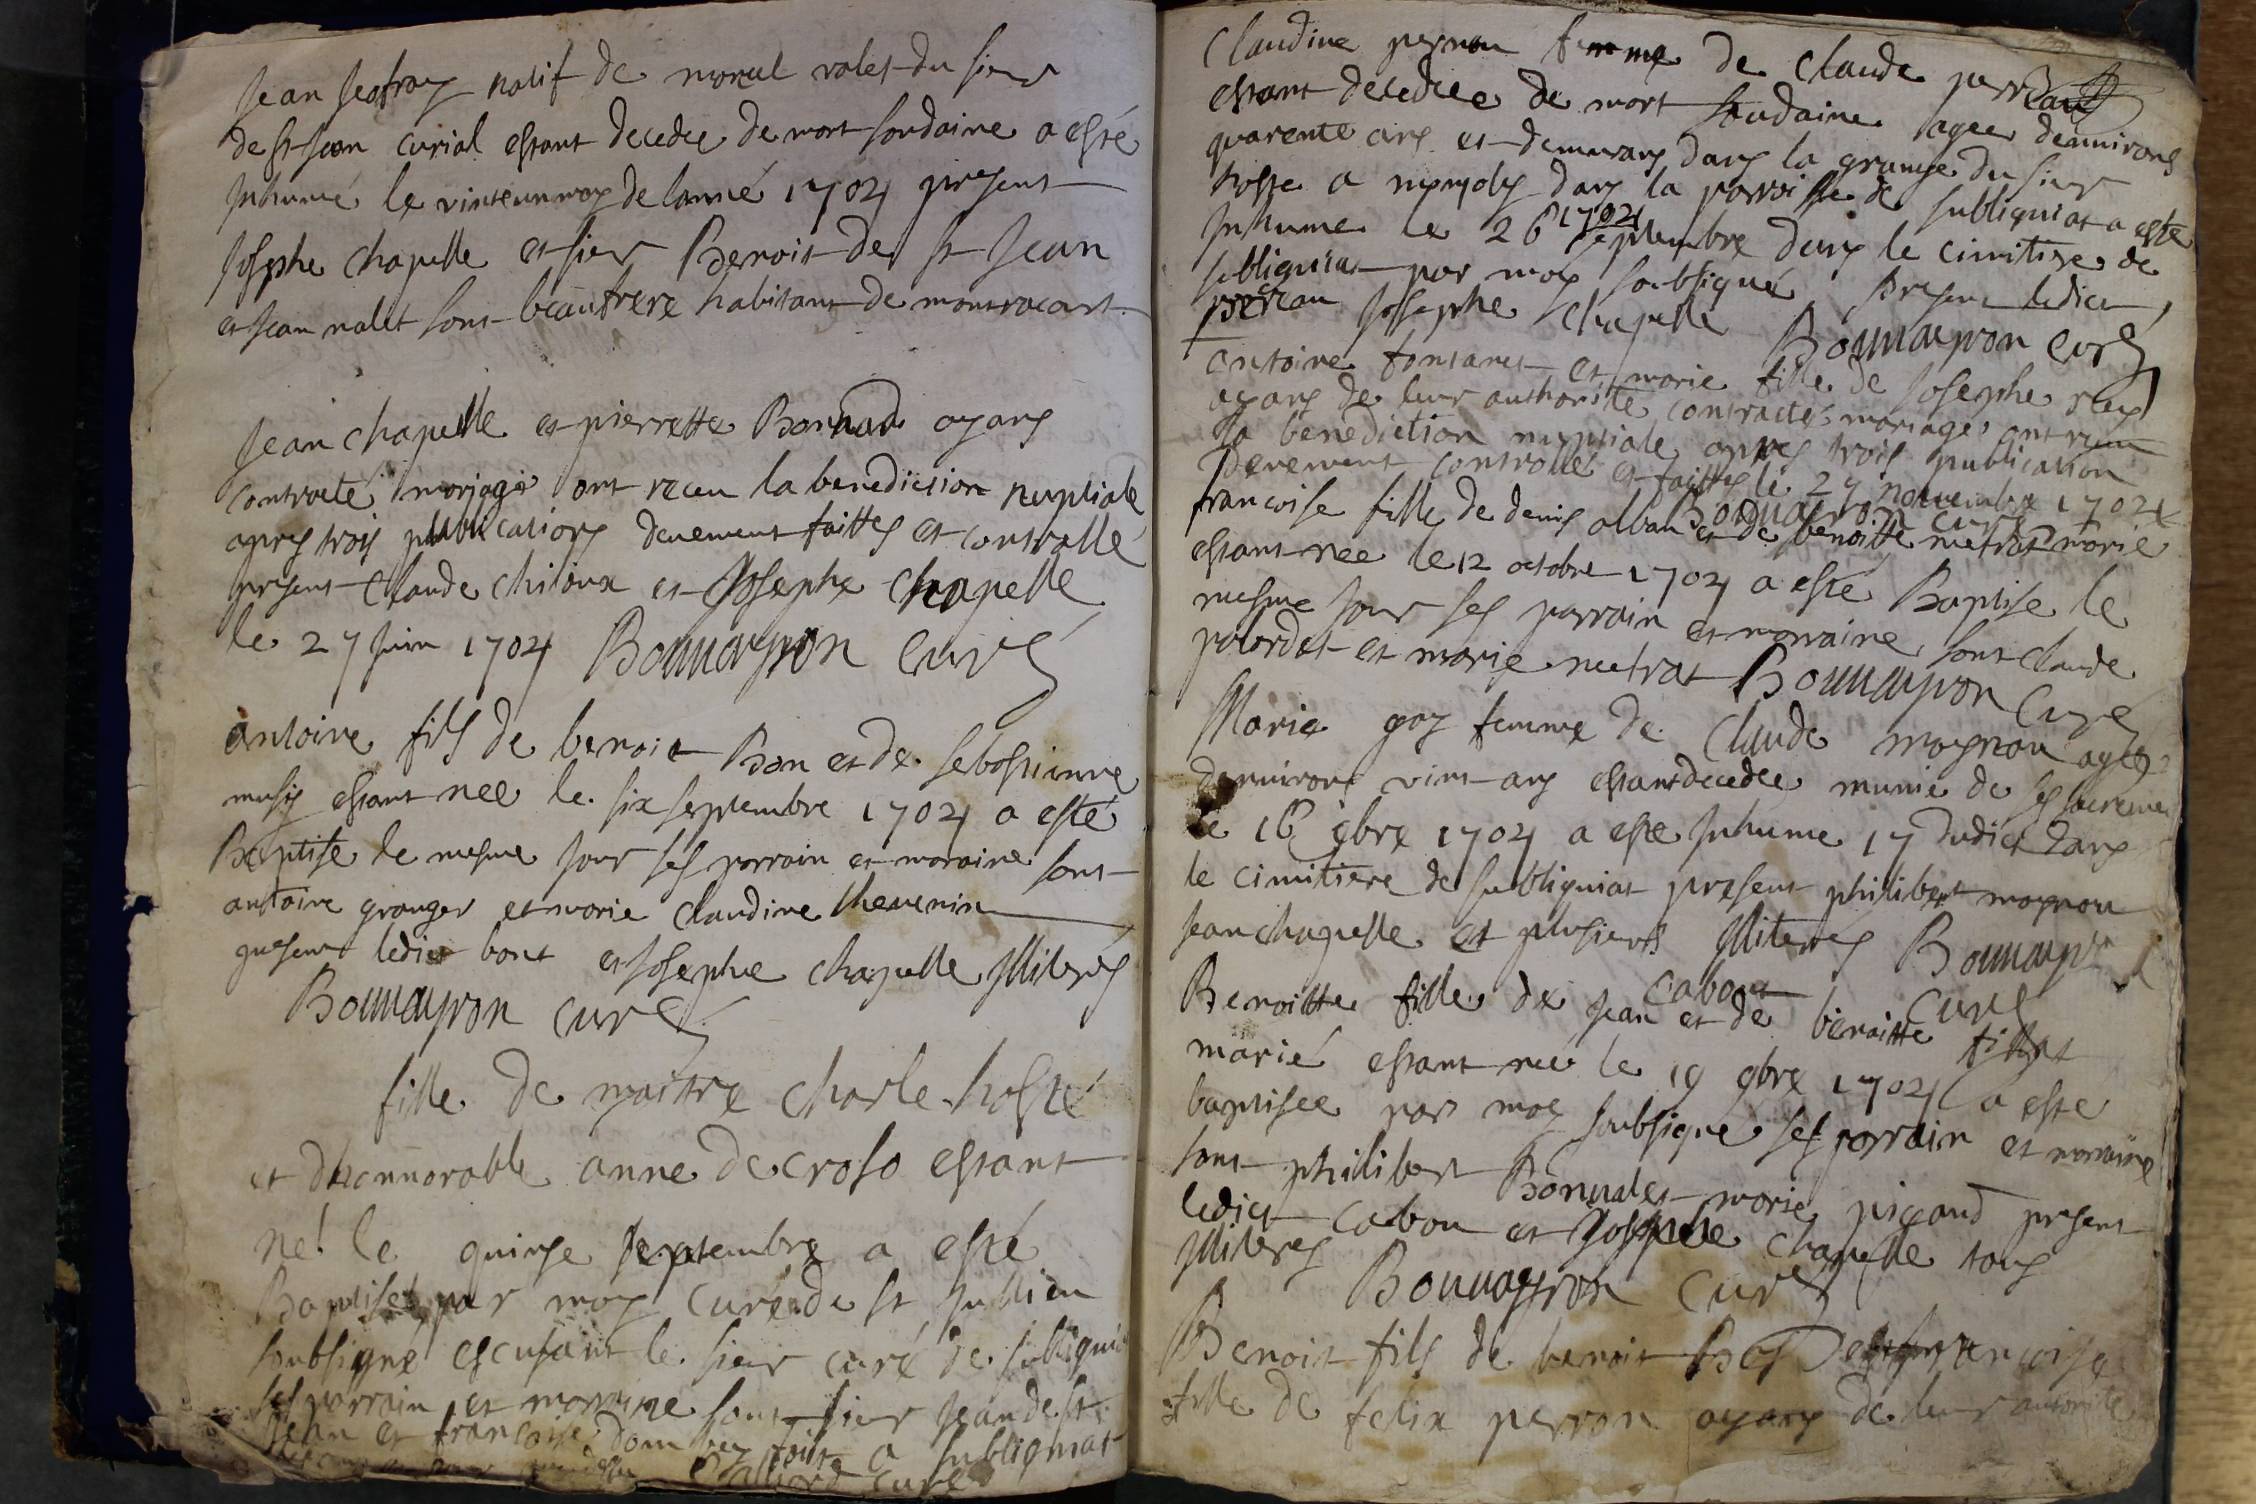 Jean Jeofray natif de valet du sieur
de st jean curial estant decedee de mort soudaine a esté
Inhumé le vinteun may de lanné 1704 present
Josephe chapelle et sieur Benoit de st Jean
et jean nalet sont beaufrere habitant de montracart
Jean chapelle et pierrette Bornad ayans
contracté mariage ont receu la benediction nuptiale
apres trois publications deuement faittes et contrallé
present Claude chiloux et Josephe chapelle
le 27 juin 1704 Bonnayron curé
antoine fils de benoit Bon et de sebastienne
musy estant nee le six septembre 1704 a esté
Baptise le mesme jour ses parrain et maraine sont
antoine granger et marie claudine thevenin
present ledict bont et Josephe chapelle Illiterés
Bonnayron curé
fille de maistre charle hosté
et dhonnorable anne decroso estant
né le quinse septembre a esté
Baptisé par moy curé de st Jullien
soubsigné escusant le sieur curé de subligni
ses parrain et marraine sont sieur jean de st
Jean et francoise a subligniat
curé
Claudine perron femme de claude
estant decedeé de mort soudaine agee denuirons
quarente ans et demeurans dans la grange du sieur
hoste a dans la parroisse de subligniat a esté
Inhume le 26 septembre 1704 dans le cimitiere de
subligniat par moy soubsigné present ledict
perreau Josephe chapelle Bonnayron curé
antoine fontanet et marie fille de Josephe rey
ayans de leur authorité contracté mariage ont receu
la benediction nuptiale apres trois publication
deuement controllé et faittes le 27 novembre 1704
Bonnayron curé
francoise fille de denis alban et de benoitte metrat marie
estant nee le 12 octobre 1704 a esté Baptise le
mesme jour ses parrain et marraine sont claude
polordet et marie metrat Bonnayron curé
Marie goy femme de Claude moynon agee
denuirons vint ans estant decedee munie de ses sacremens
le 16 9bre 1704 a esté Inhume 17 dudict dans
le cimitiere de subligniat present philibert moynon
jean chapelle et plusieurs Illiterés Bonnayron
curé
Benoitte fille de jean cabout et de benoitte tillet
marié estant neé le 19 9bre 1704 a esté
baptisee par moy soubsigné ses parrain et marraine
sont philibert Bonnalet marie pigaud present
ledict cabou et Josephe chapelle tous
Illiterés Bonnayron curé
Benoit fils de benoit francoise
fille de felix perron ayans de leur autorité